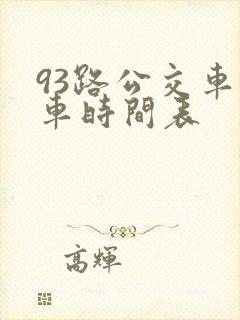 93路公交車
車時間表
高輝